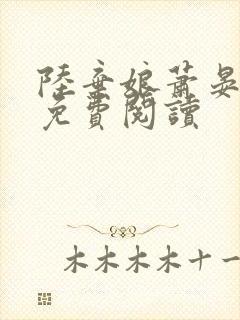 陸棄娘蕭晏
免費閱讀
木木木木十一